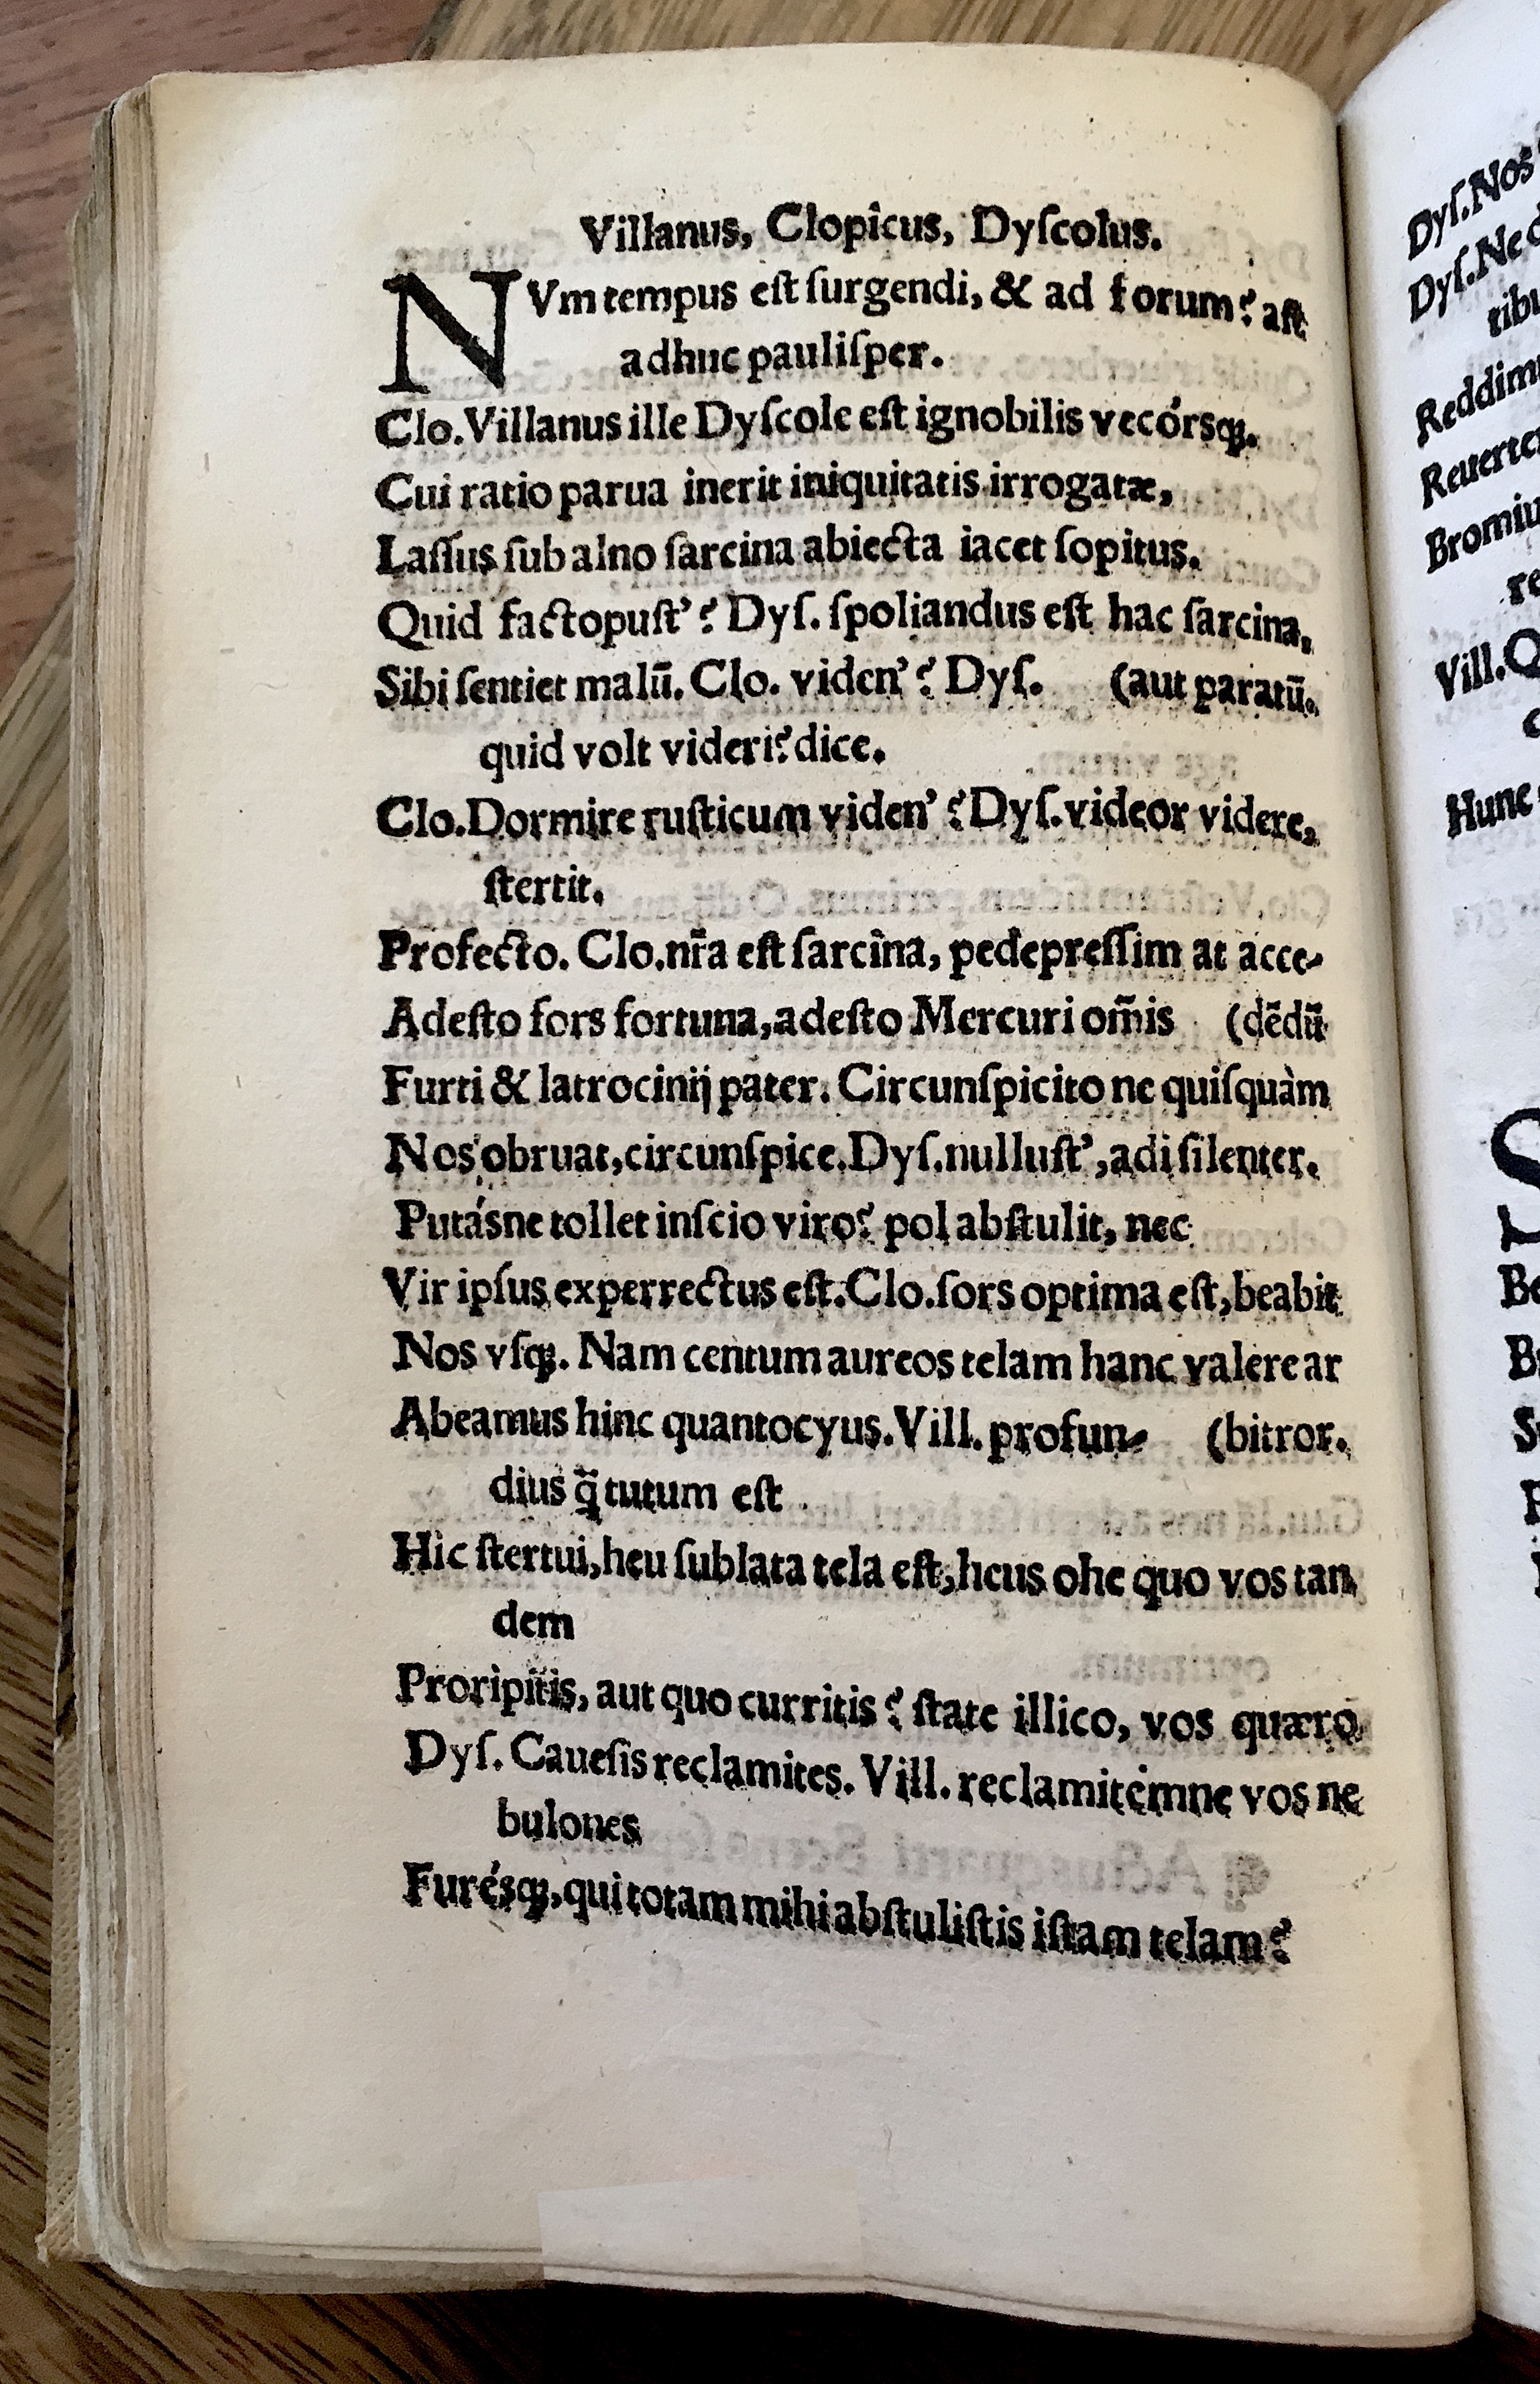 Villanus, Clopîcus, Dyſcolus.
NVm tempus eſt ſurgendi, & ad forum? aſt
adhuc pauliſper.
Clo. Villanus ille Dyſcole eſt ignobilis vecórsq;.
Cui ratio parua inerit iniquitatis irrogatæ,
Laſſus ſub alno ſarcina abiecta iacet ſopitus.
Quid factopuſt’? Dyſ. ſpoliandus eſt hac ſarcina,
Sibi ſentiet malū. Clo. viden’? Dyſ. (aut paratū.
quid volt videri? dice.
Clo. Dormire ruſticum viden’? Dyſ. videor videre,
ſtertit.
Profecto. Clo. nr̄a eſt ſarcîna, pedepreſſim at acce-
Adeſto fors fortuna, adeſto Mercuri om̄is (dēdū
Furti & latrocinij pater. Circunſpicito ne quiſquàm
Nos obruat, circunſpice. Dyſ. nulluſt’, adi ſilenter.
Putásne tollet inſcio viro? pol abſtulit, nec
Vir ipſus experrectus eſt. Clo. ſors optima eſt, beabit
Nos vſq;. Nam centum aureos telam hanc valere ar
Abeamus hinc quantocyus. Vill. profun- (bitror.
dius q̃ tutum eſt
Hic ſtertui, heu ſublata tela eſt, heus ohe quo vos tan
dem
Proripitis, aut quo curritis? ſtate illico, vos quæro
Dyſ. Caueſis reclamites. Vill. reclamitémne vos ne
bulones
Furésq;, qui totam mihi abſtuliſtis iſtam telam?
Dyſ. Nos
Dyſ. Ne
tibu
Reddim
Reuerte
Bromiu
re
Vill. Q
Hunc
S
Be
B